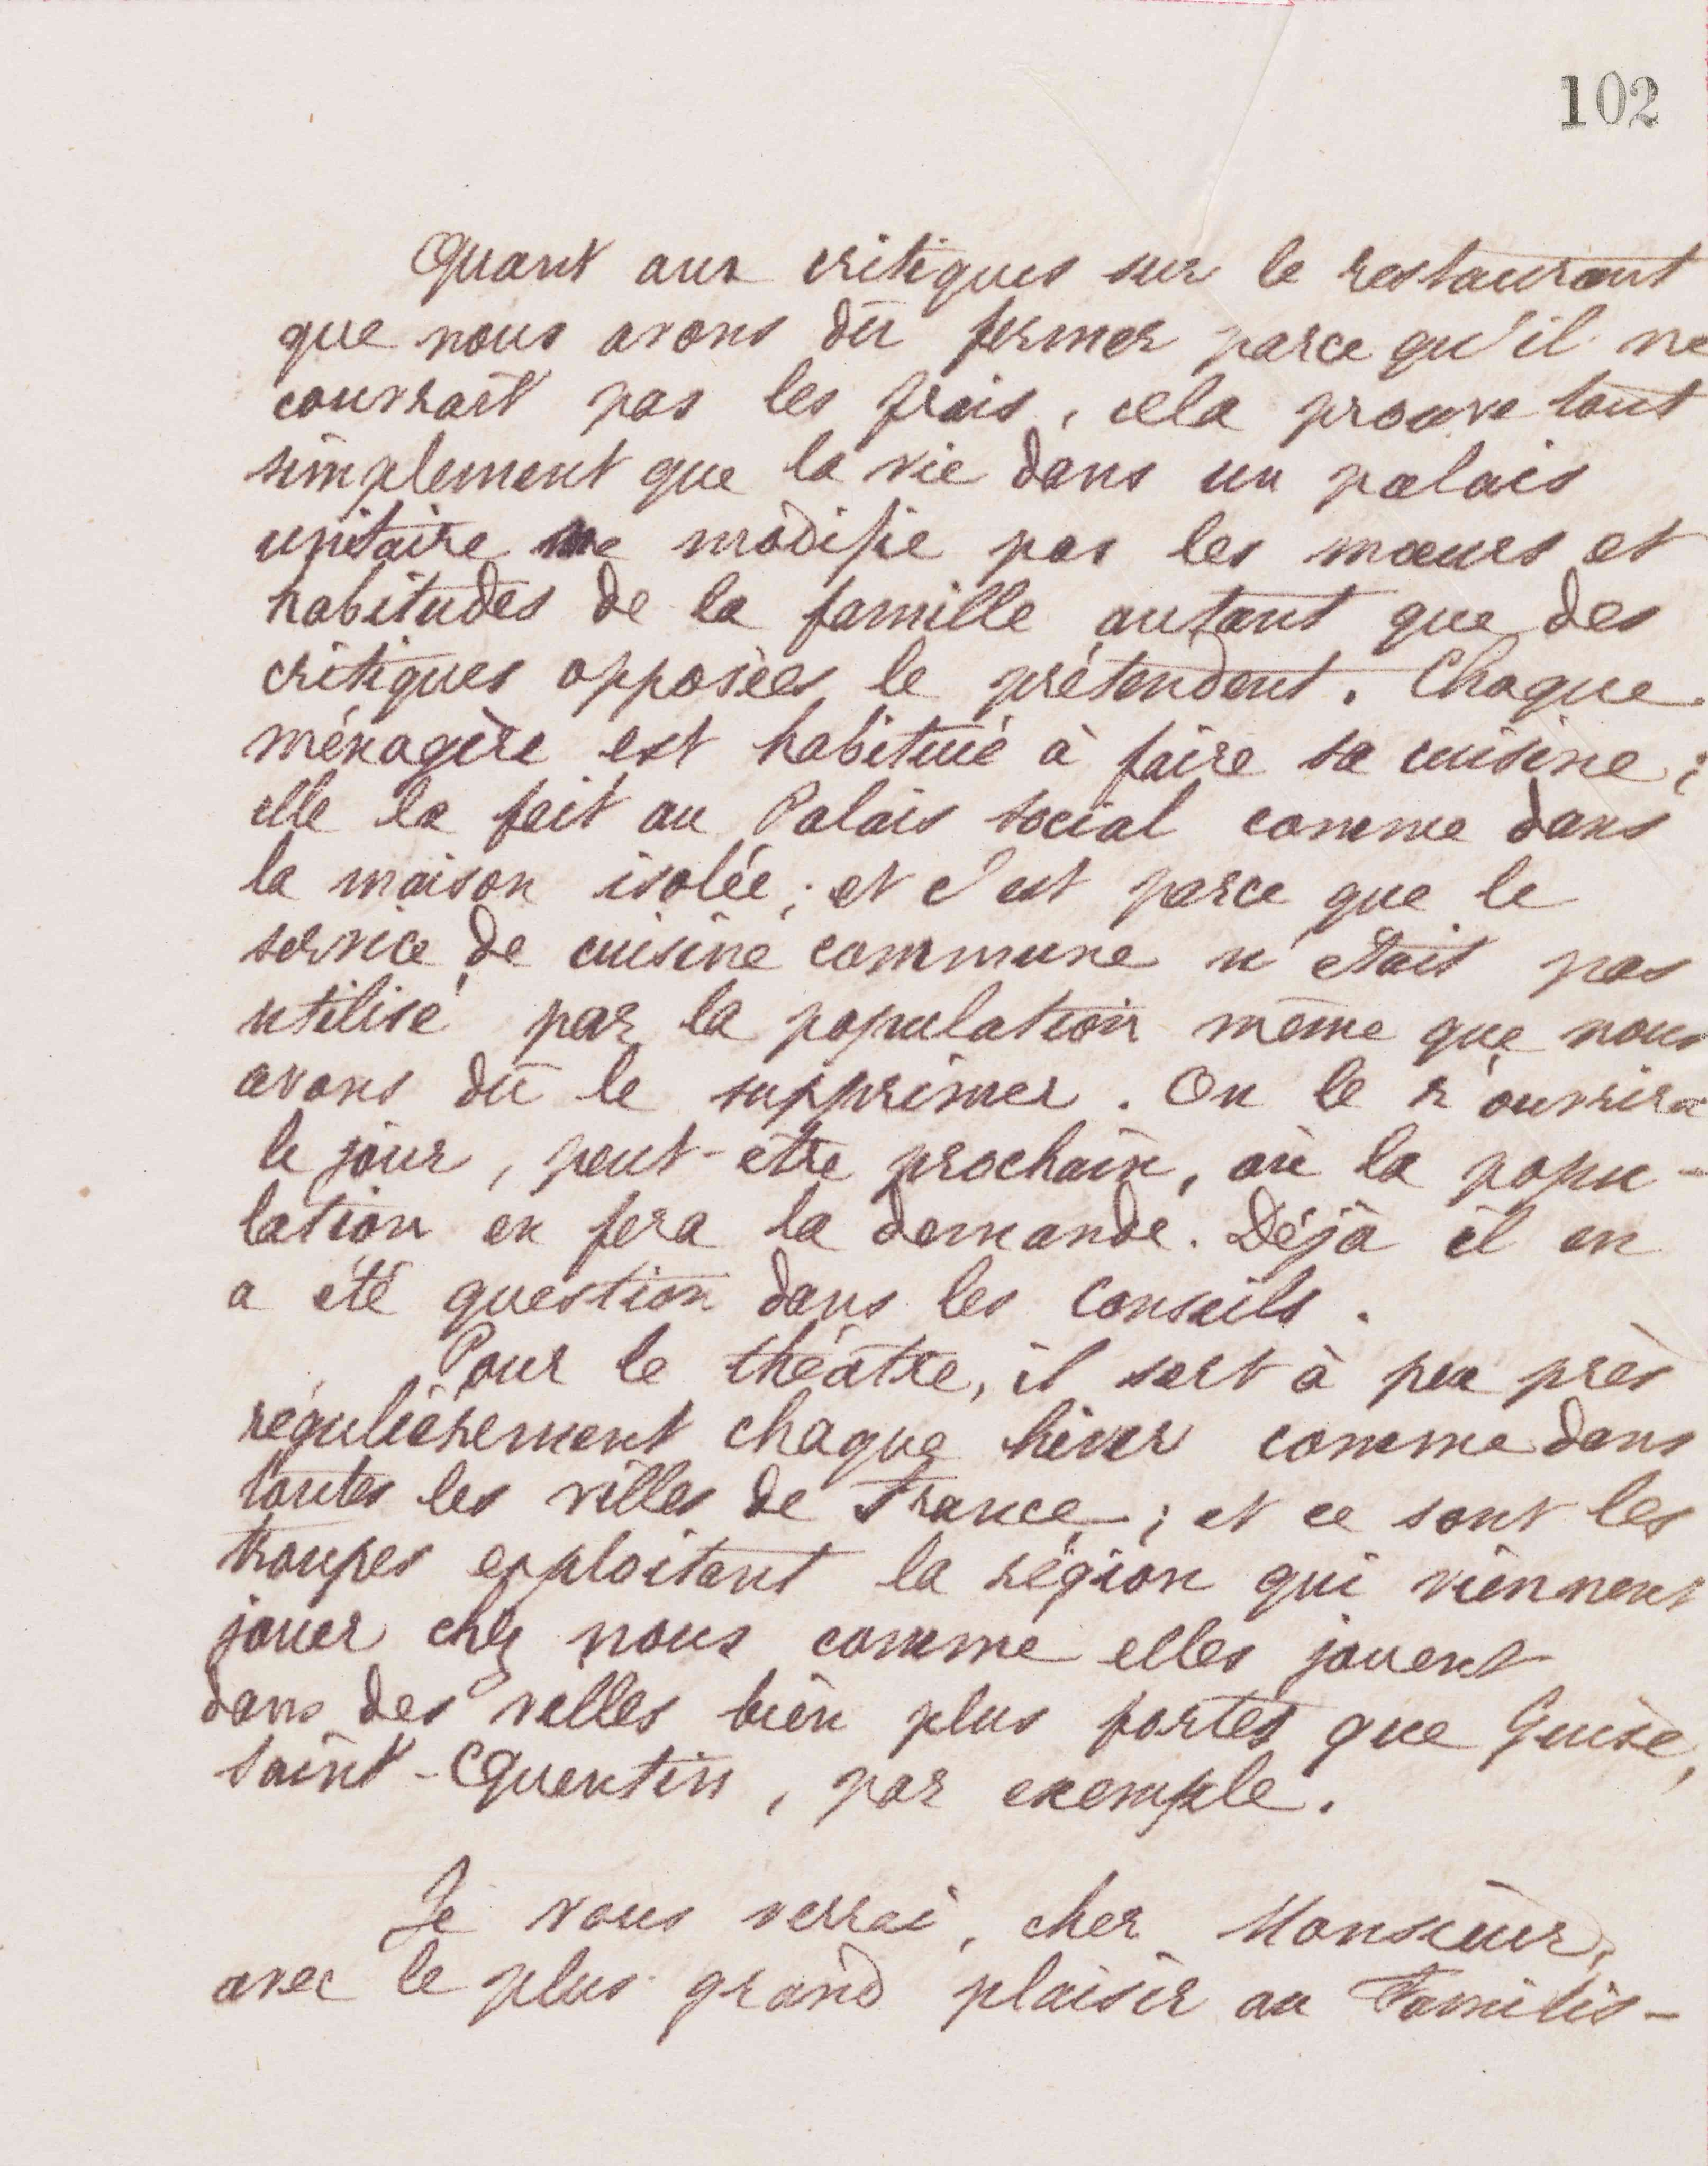 102
Quant aux critiques sur le restaurant
que nous avons dû fermer parce qu'il ne
couvrait pas les frais, cela prouve tout
simplement que la vie dans un palais
unitaire ne modifie pas les mœurs et
habitudes de la famille autant que des
critiques opposées le prétendent. Chaque
ménagère est habitué à faire sa cuisine ;
elle la fait au Palais social comme dans
la maison isolée ; et c'est parce que le
service de cuisine commune n'était pas
utilisé par la population même que nous
avons dû le supprimer. On le r'ouvrira
le jour, peut-être prochain, où la popu-
lation en fera la demande. Déjà il en
a été question dans les Conseils.
Pour le théâtre, il sert à peu près
régulièrement chaque hiver comme dans
toutes les villes de France ; et ce sont les
troupes exploitant la région qui viennent
jouer chez nous comme elles jouent
dans des villes bien plus fortes que Guise,
Saint-Quentin, par exemple.
Je vous verrai, cher Monsieur,
avec le plus grand plaisir au Familis-